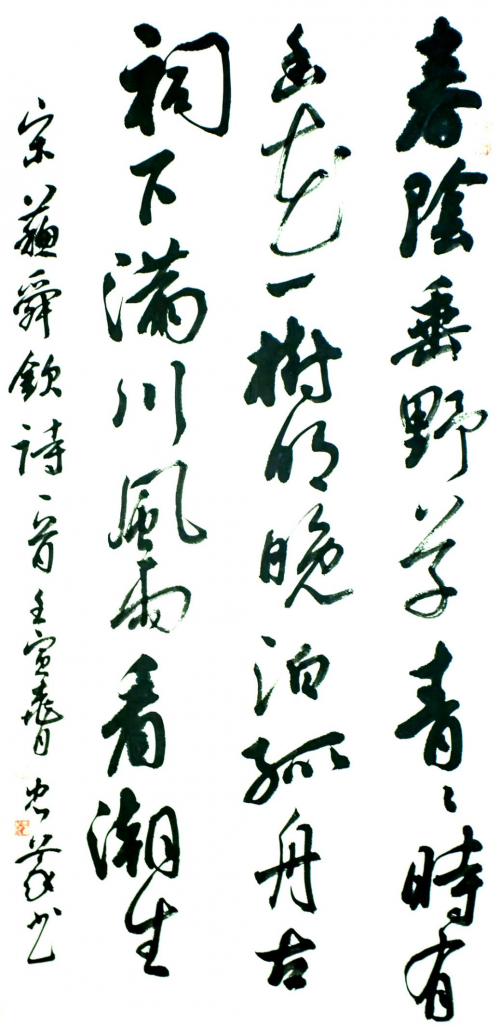 春陰垂野草青〻時有
幽花一樹明晚泊孤舟古
祠下滿川風雨看潮生
宋蘇舜欽詩一首壬寅月忠书